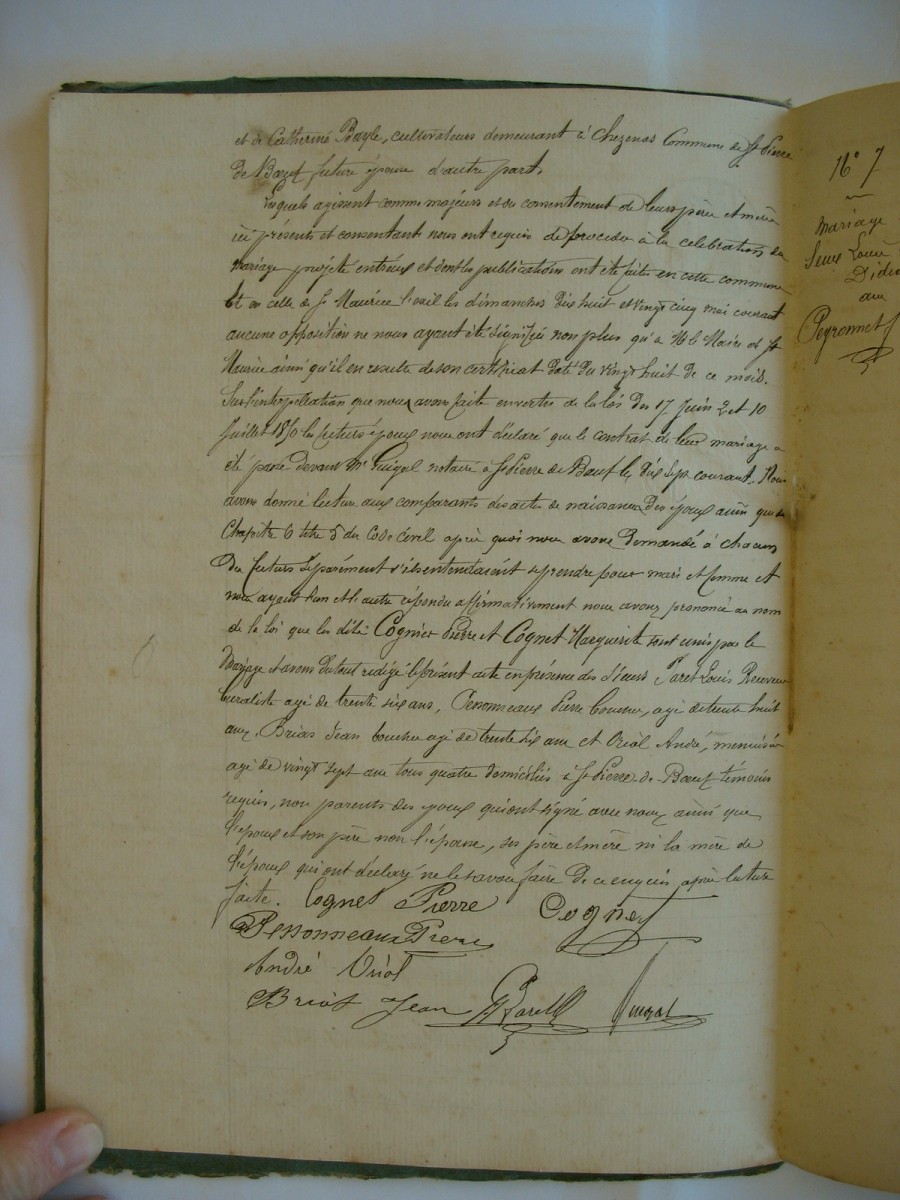 et de Catherine Bayle, cultivateurs demeurant à Chezenas Commune de St Pierre
de Bœuf future épouse d'autre part.
Lesquels agissent comme majeurs et du consentement de leurs père et mère
ici présents et consentants nous ont requis de procéder à la célébration du
mariage projeté entr'eux et dont les publications ont été faites en cette commune
et en celle de St Maurice l'exil les dimanches dix huit et vingt cinq mai courant
aucune opposition ne nous ayant été signifiée non plus qu'à Mr le Maire de St
Maurice ainsi qu'il en resulte de son certificat daté du vingt huit de ce mois.
Sur l'interpellation que nous avons faite en vertu de la loi du 17 Juin 2 et 10
Juillet 1850 les futurs époux nous ont déclaré que le contrat de leur mariage a
été passé devant Me Guigal notaire à St Pierre de Bœuf le dix sept courant. Nous
avons donné lecture aux comparants des actes de naissance des époux ainsi que du
Chapitre 6 titre 5 du Code civil après quoi nous avons demandé à chacun
des futurs séparément s'ils entendaient se prendre pour mari et femme et
nous ayant l'un et l'autre répondu affirmativement nous avons prononcé au nom
de la loi que les dits Cognet Pierre et Cognet Marguerite sont unis par le
Mariage et avons du tout rédigé le présent acte en présence des sieurs Paret Louis Receveur
buraliste agé de trente six ans, Pessonneaux Pierre, agé de trente huit
ans, Briat Jean agé de trente six ans et Oriol André, menuisier
agé de vingt sept ans tous quatre domiciliés à St Pierre-de-Bœuf témoins
requis, non parents des époux qui ont signé avec nous ainsi que
l'époux et son père non l'épouse, ses père et mère ni la mère de
l'époux qui ont déclaré ne le savoir faire de ce enquis après lecture
faite. Cognet Pierre Cognet
Pessonneaux Pierre
André Oriol
Briat Jean Paret
No 7
Mariage
Louis
Didier
avec
Peyronnet